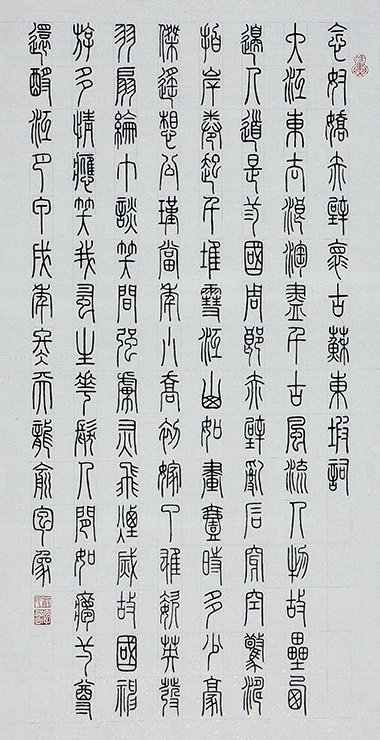 念奴嬌赤壁懷古蘇東坡詞
大江東去浪淘盡千古風流人物故壘西
邊人道是三國周郎赤壁亂石穿空驚濤
拍岸卷起千堆雪江山如畫壹時多少豪
傑遙想公瑾當年小喬初嫁了雄姿英發
羽扇綸巾談笑間強虜灰飛煙滅故國神
游多情應笑我早生華髮人間如夢一尊
還酹江月甲戌年冬天龍俞